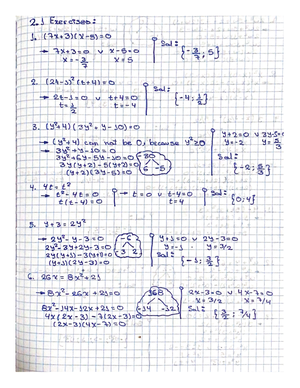 2.1 Exercises:
1. (7x+3)(x-5)=0
→ 7x+3=0 v x-5=0
x=-3/7 x=5
Sol: {-3/7; 5}
2. (2t-1)²(t+4)=0
→ 2t-1=0 v t+4=0
t=1/2 t=-4
Sol: {-4; 1/2}
3. (y²+4)(3y²+y-10)=0
→ (y²+4) can not be 0, because y²≥0
→ 3y²+y-10=0
3y²+6y-5y-10=0
3y(y+2)-5(y+2)=0
(y+2)(3y-5)=0
-30
6 -5
y+2=0 v 3y-5=0
y=-2 y=5/3
Sol: {-2; 5/3}
4. 4t=t²
→ t²-4t=0
t(t-4)=0
→ t=0 v t-4=0
t=4
Sol: {0; 4}
5. y+3=2y²
→ 2y²-y-3=0
2y²-3y+2y-3=0
(y+1)(2y-3)=0
-6
-3 2
y+1=0 v 2y-3=0
y=-1 y=3/2
Sol: {-1; 3/2}
6. 26x=8x²+21
→ 8x²-26x+21=0
8x²-14x-12x+21=0
(2x-3)(4x-7)=0
168
-14 -12
2x-3=0 v 4x-7=0
x=3/2 x=7/4
Sol: {3/2; 7/4}